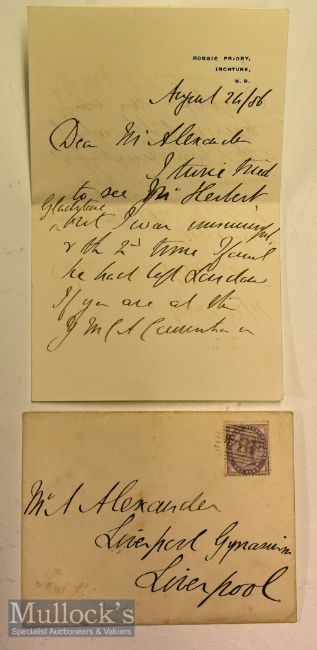 ROSSIE PRIORY,
INCHTURE,
N. B.
August 24/86
Dear Mr Alexander
I twice tried
to see Mr Herbert
Gladstone
but I was unsuccessful
& the 2nd time I found
he had left London
If you are at the
Y M C A
Mr A Alexander
Liverpool Gymnasium
Liverpool
Mullock's
Specialist Auctioneers & Valuers